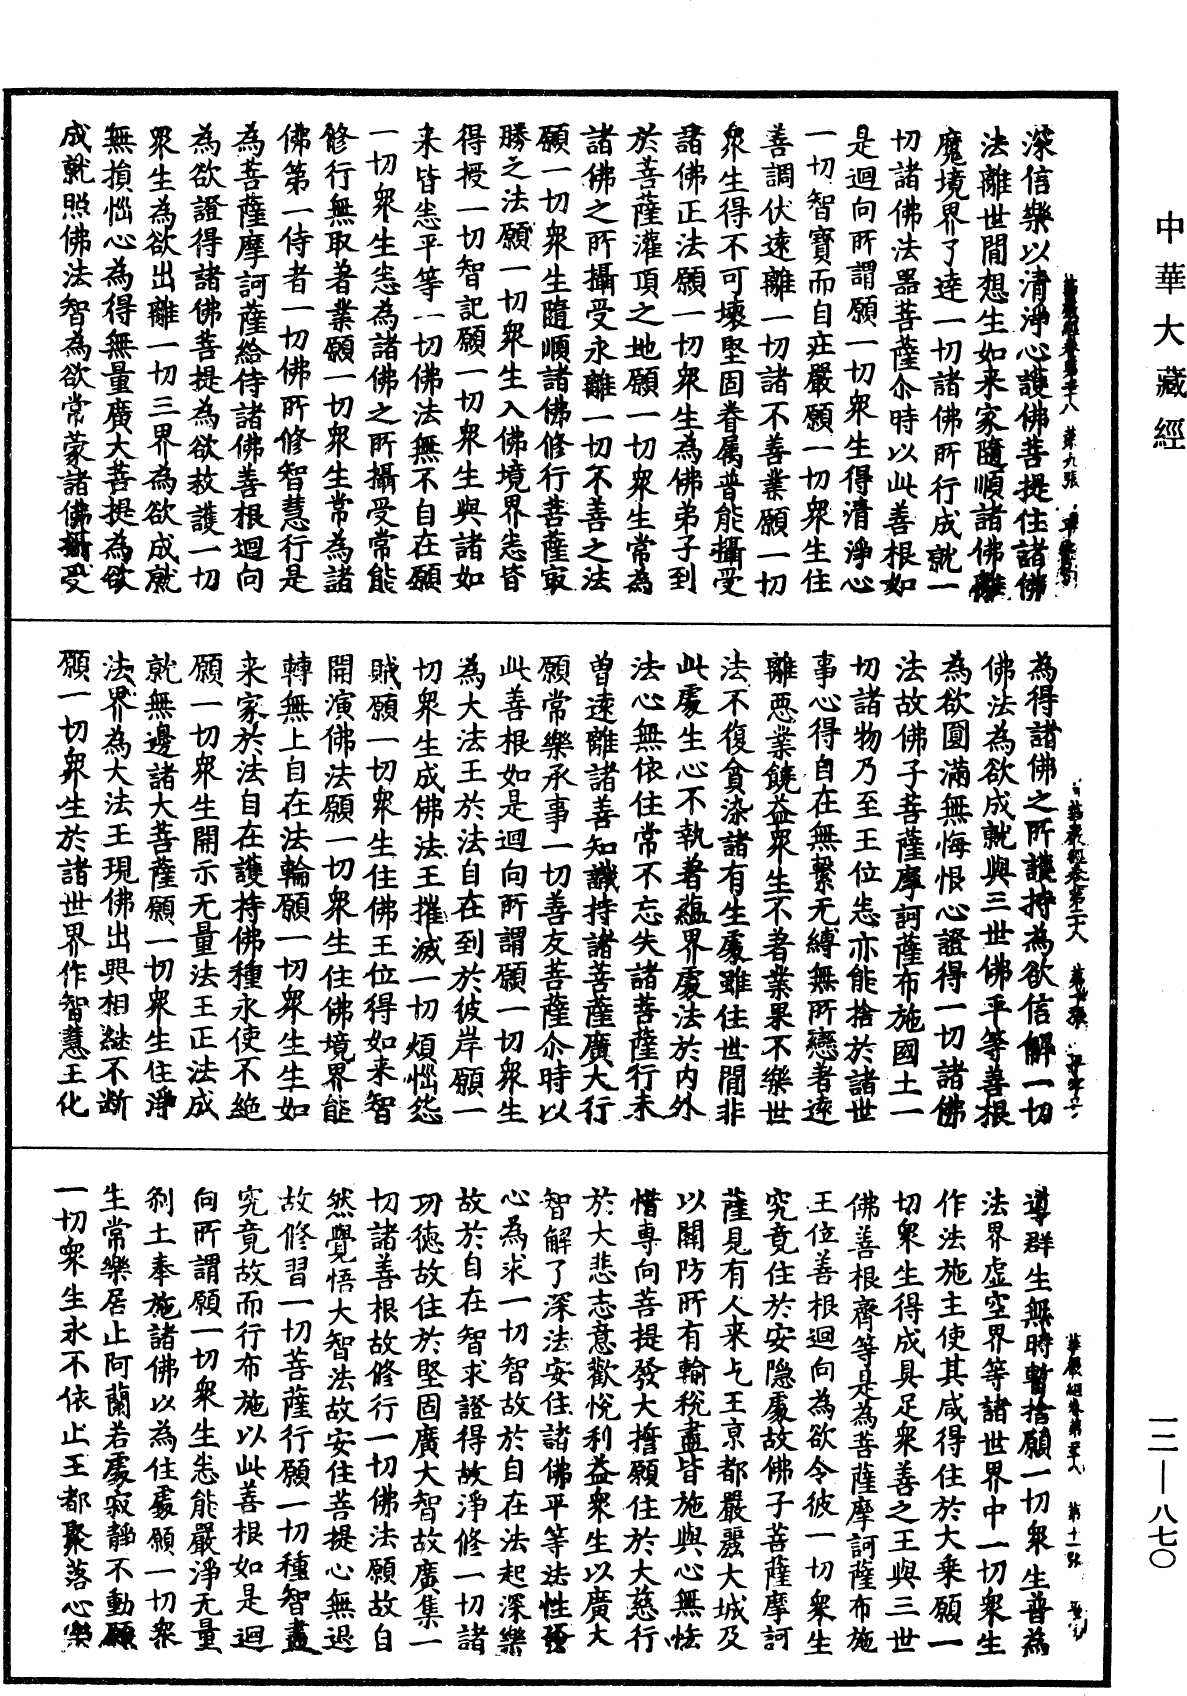 中華大藏經
深信樂以清淨心護佛菩提住諸佛
法離世間想生如来家隨順諸佛離
魔境界了達一切諸佛所行成就一
切諸佛法器菩薩尒時以此善根如
是迴向所謂願一切眾生得清淨心
一切智寶而自莊嚴願一切眾生住
善調伏遠離一切諸不善業願一切
眾生得不可壞堅固眷属普能攝受
諸佛正法願一切眾生為佛弟子到
於菩薩灌頂之地願一切眾生常為
諸佛之所攝受永離一切不善之法
願一切眾生隨順諸佛修行菩薩冣
勝之法願一切眾生入佛境界悉皆
得授一切智記願一切眾生與諸如
来皆悉平等一切佛法無不自在願
一切眾生悉為諸佛之所攝受常能
修行無取著業願一切眾生常為諸
佛第一侍者一切佛所修智慧行是
為菩薩摩訶薩給侍諸佛善根迴向
為欲證得諸佛菩提為欲救護一切
眾生為欲出離一切三界為欲成就
無損惱心為得無量廣大菩提為欲
成就照佛法智為欲常蒙諸佛攝受
為得諸佛之所護持為欲信解一切
佛法為欲成就與三世佛平等善根
為欲圓滿無悔恨心證得一切諸佛
法故佛子菩薩摩訶薩布施國土一
切諸物乃至王位悉亦能捨於諸世
事心得自在無繫无縛無所戀著遠
離惡業饒益眾生不著業果不樂世
法不復貪染諸有生處雖住世間非
此處生心不執著蘊界處法於內外
法心無依住常不忘失諸菩薩行未
曽遠離諸善知識持諸菩薩廣大行
願常樂承事一切善友菩薩尒時以
此善根如是迴向所謂願一切眾生
為大法王於法自在到於彼岸願一
切眾生成佛法王摧滅一切煩惱怨
賊願一切眾生住佛王位得如来智
開演佛法願一切眾生住佛境界能
轉無上自在法輪願一切眾生生如
来家於法自在護持佛種永使不絕
願一切眾生開示无量法王正法成
就無邊諸大菩薩願一切眾生住淨
法界為大法王現佛出興相継不断
願一切眾生於諸世界作智慧王化
導群生無時暫捨願一切眾生普為
法界虛空界等諸世界中一切眾生
作法施主使其咸得住於大乘願一
切眾生得成具足眾善之王與三世
佛善根齊等是為菩薩摩訶薩布施
王位善根迴向為欲令彼一切眾生
究竟住於安隱處故佛子菩薩摩訶
薩見有人来乞王京都嚴麗大城及
以關防所有輸稅盡皆施與心無恡
惜専向菩提發大擔願住於大慈行
於大悲志意歡悅利益眾生以廣大
智解了深法安住諸佛平等法性發
心為求一切智故於自在法起深樂
故於自在智求證得故淨修一切諸
功德故住於堅固廣大智故廣集一
切諸善根故修行一切佛法願故自
然覺悟大智法故安住菩提心無退
故修習一切菩薩行願一切種智盡
究竟故而行布施以此善根如是迴
向所謂願一切眾生悉能嚴淨无量
剎土奉施諸佛以為住處願一切眾
生常樂居止阿蘭若處寂靜不動願
一切眾生永不依止王都聚落心樂
一二—八七〇